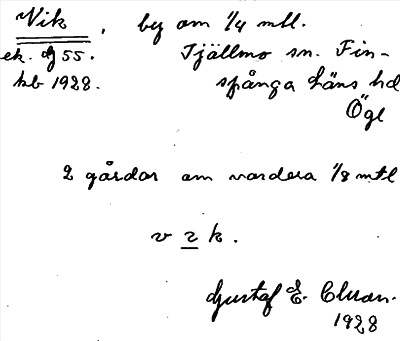 Vik, by om 1/4 mtl.
ek. bl 55. Tjällmo sn. Fin-
kb 1928. spånga läns hd
Ögl
2 gårdar om vardera 1/8 mtl
v i k.
Gustaf E. Cluan.
1928